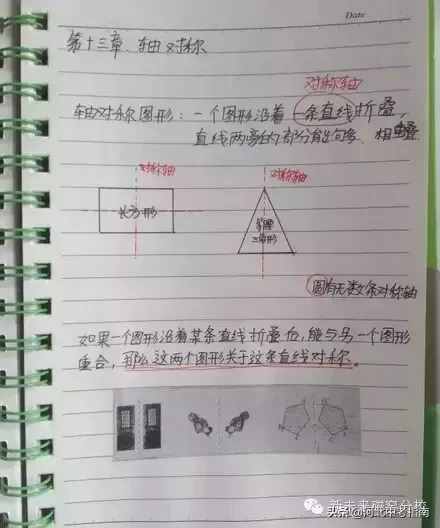 Date
第十三章、轴对称
对称轴
轴对称图形:一个图形沿着一条直线折叠,
直线两旁的部分能够相重叠
对称轴
对称轴
长方形
等腰
三角形
圆有无数条对称轴
如果一个图形沿着某条直线折叠后,能与另一个图形
重合,那么这两个图形关于这条直线对称。
新未来研究分校
头条@河北中考指南